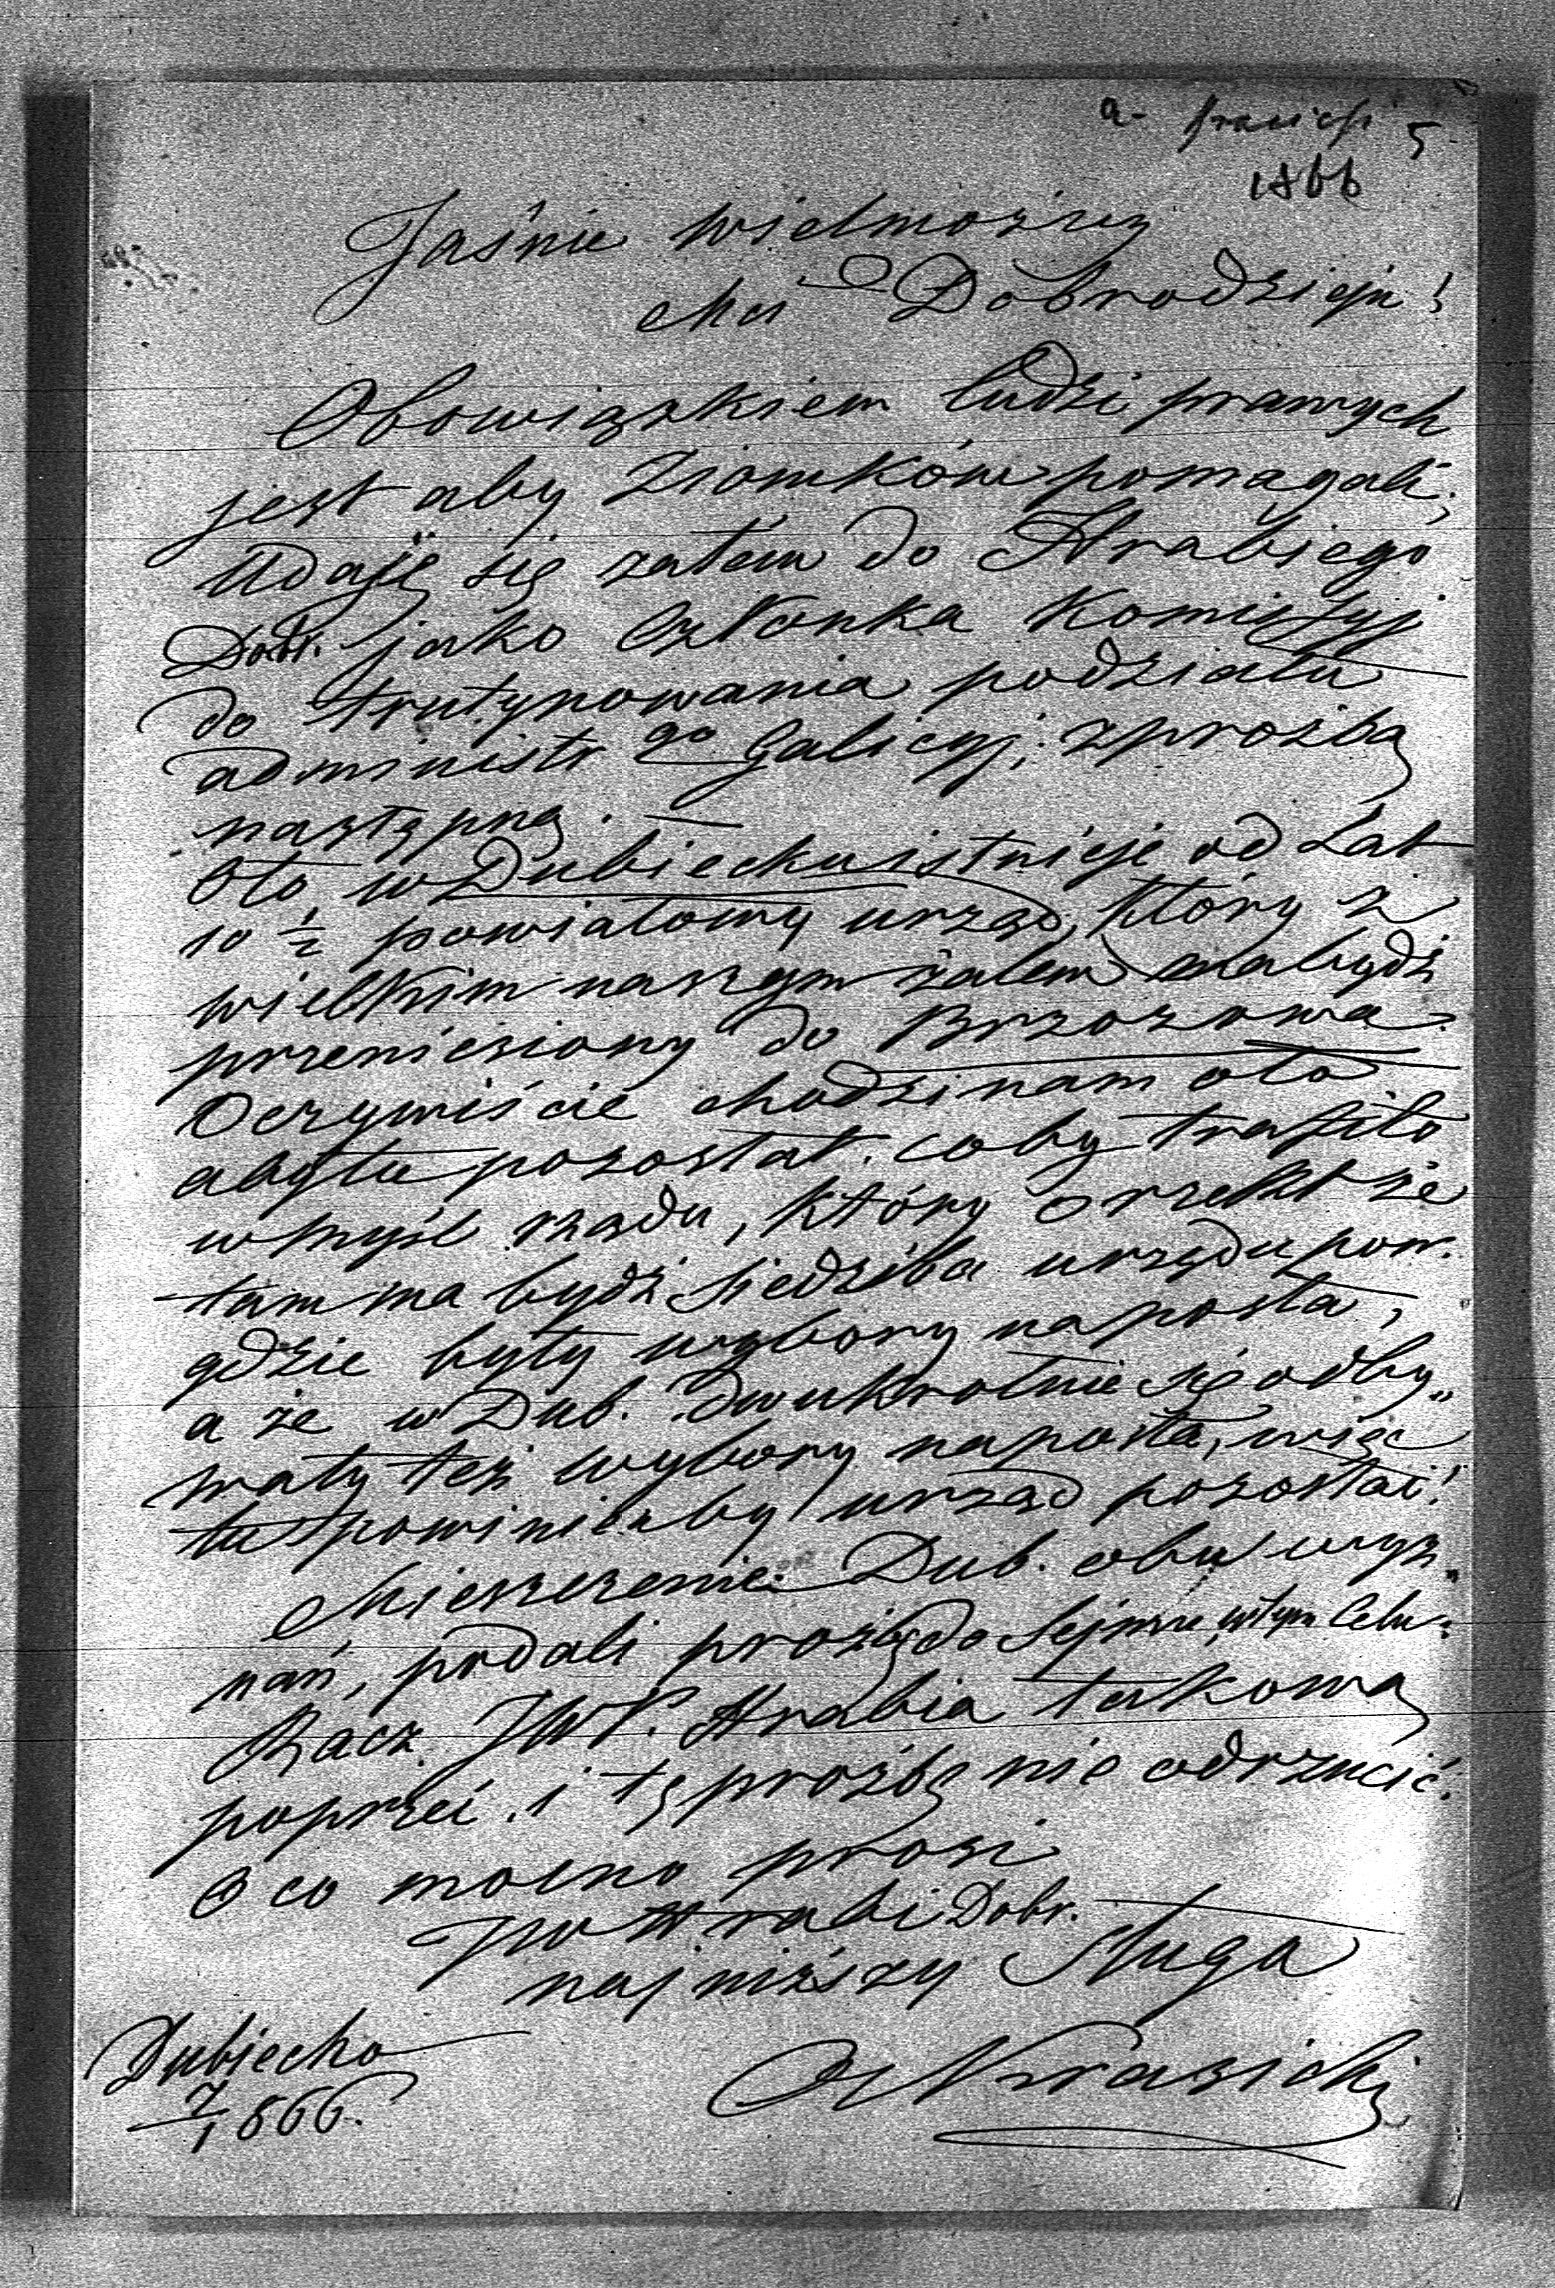 a. Krasicki 5
1866
Jaśnie Wielmożny
Mci Dobrodzieju!
Obowiązkiem ludzi prawych
jest aby Ziomków pomagali;
Udaję się zatem do Hrabiego
Dobr. jako Członka Komissyj
do trutynowania podziału
administr go Galicyj; z prożbą
następną.
Oto, w Dubiecku istnieje od Lat
10 1/2 powiatowy urząd, który z
wielkim naszym żalem ma bydź
przeniesiony do Brzozowa.
Oczywiście chodzi nam oto
aby tu pozostał. coby trafiło
w myśl rządu, który orzekł że
tam ma bydź siedziba urzędu pow.
gdzie były wybory na posła,
a że w Dub. dwukrotnie się odby„
wały też wybory na posła, więc
tu powinienby urząd pozostać!
Mieszczenie Dub. obu wyz„
nań, podali prożbę do Sejmu w tym Celu.
Racz JWP. Hrabia takową
poprzeć. i tę prożbę nie odrzucić.
O co mocno prosi
JW Hrabi Dobr.
najniższy Sługa
Krasicki
Dubiecko
7/1 866.